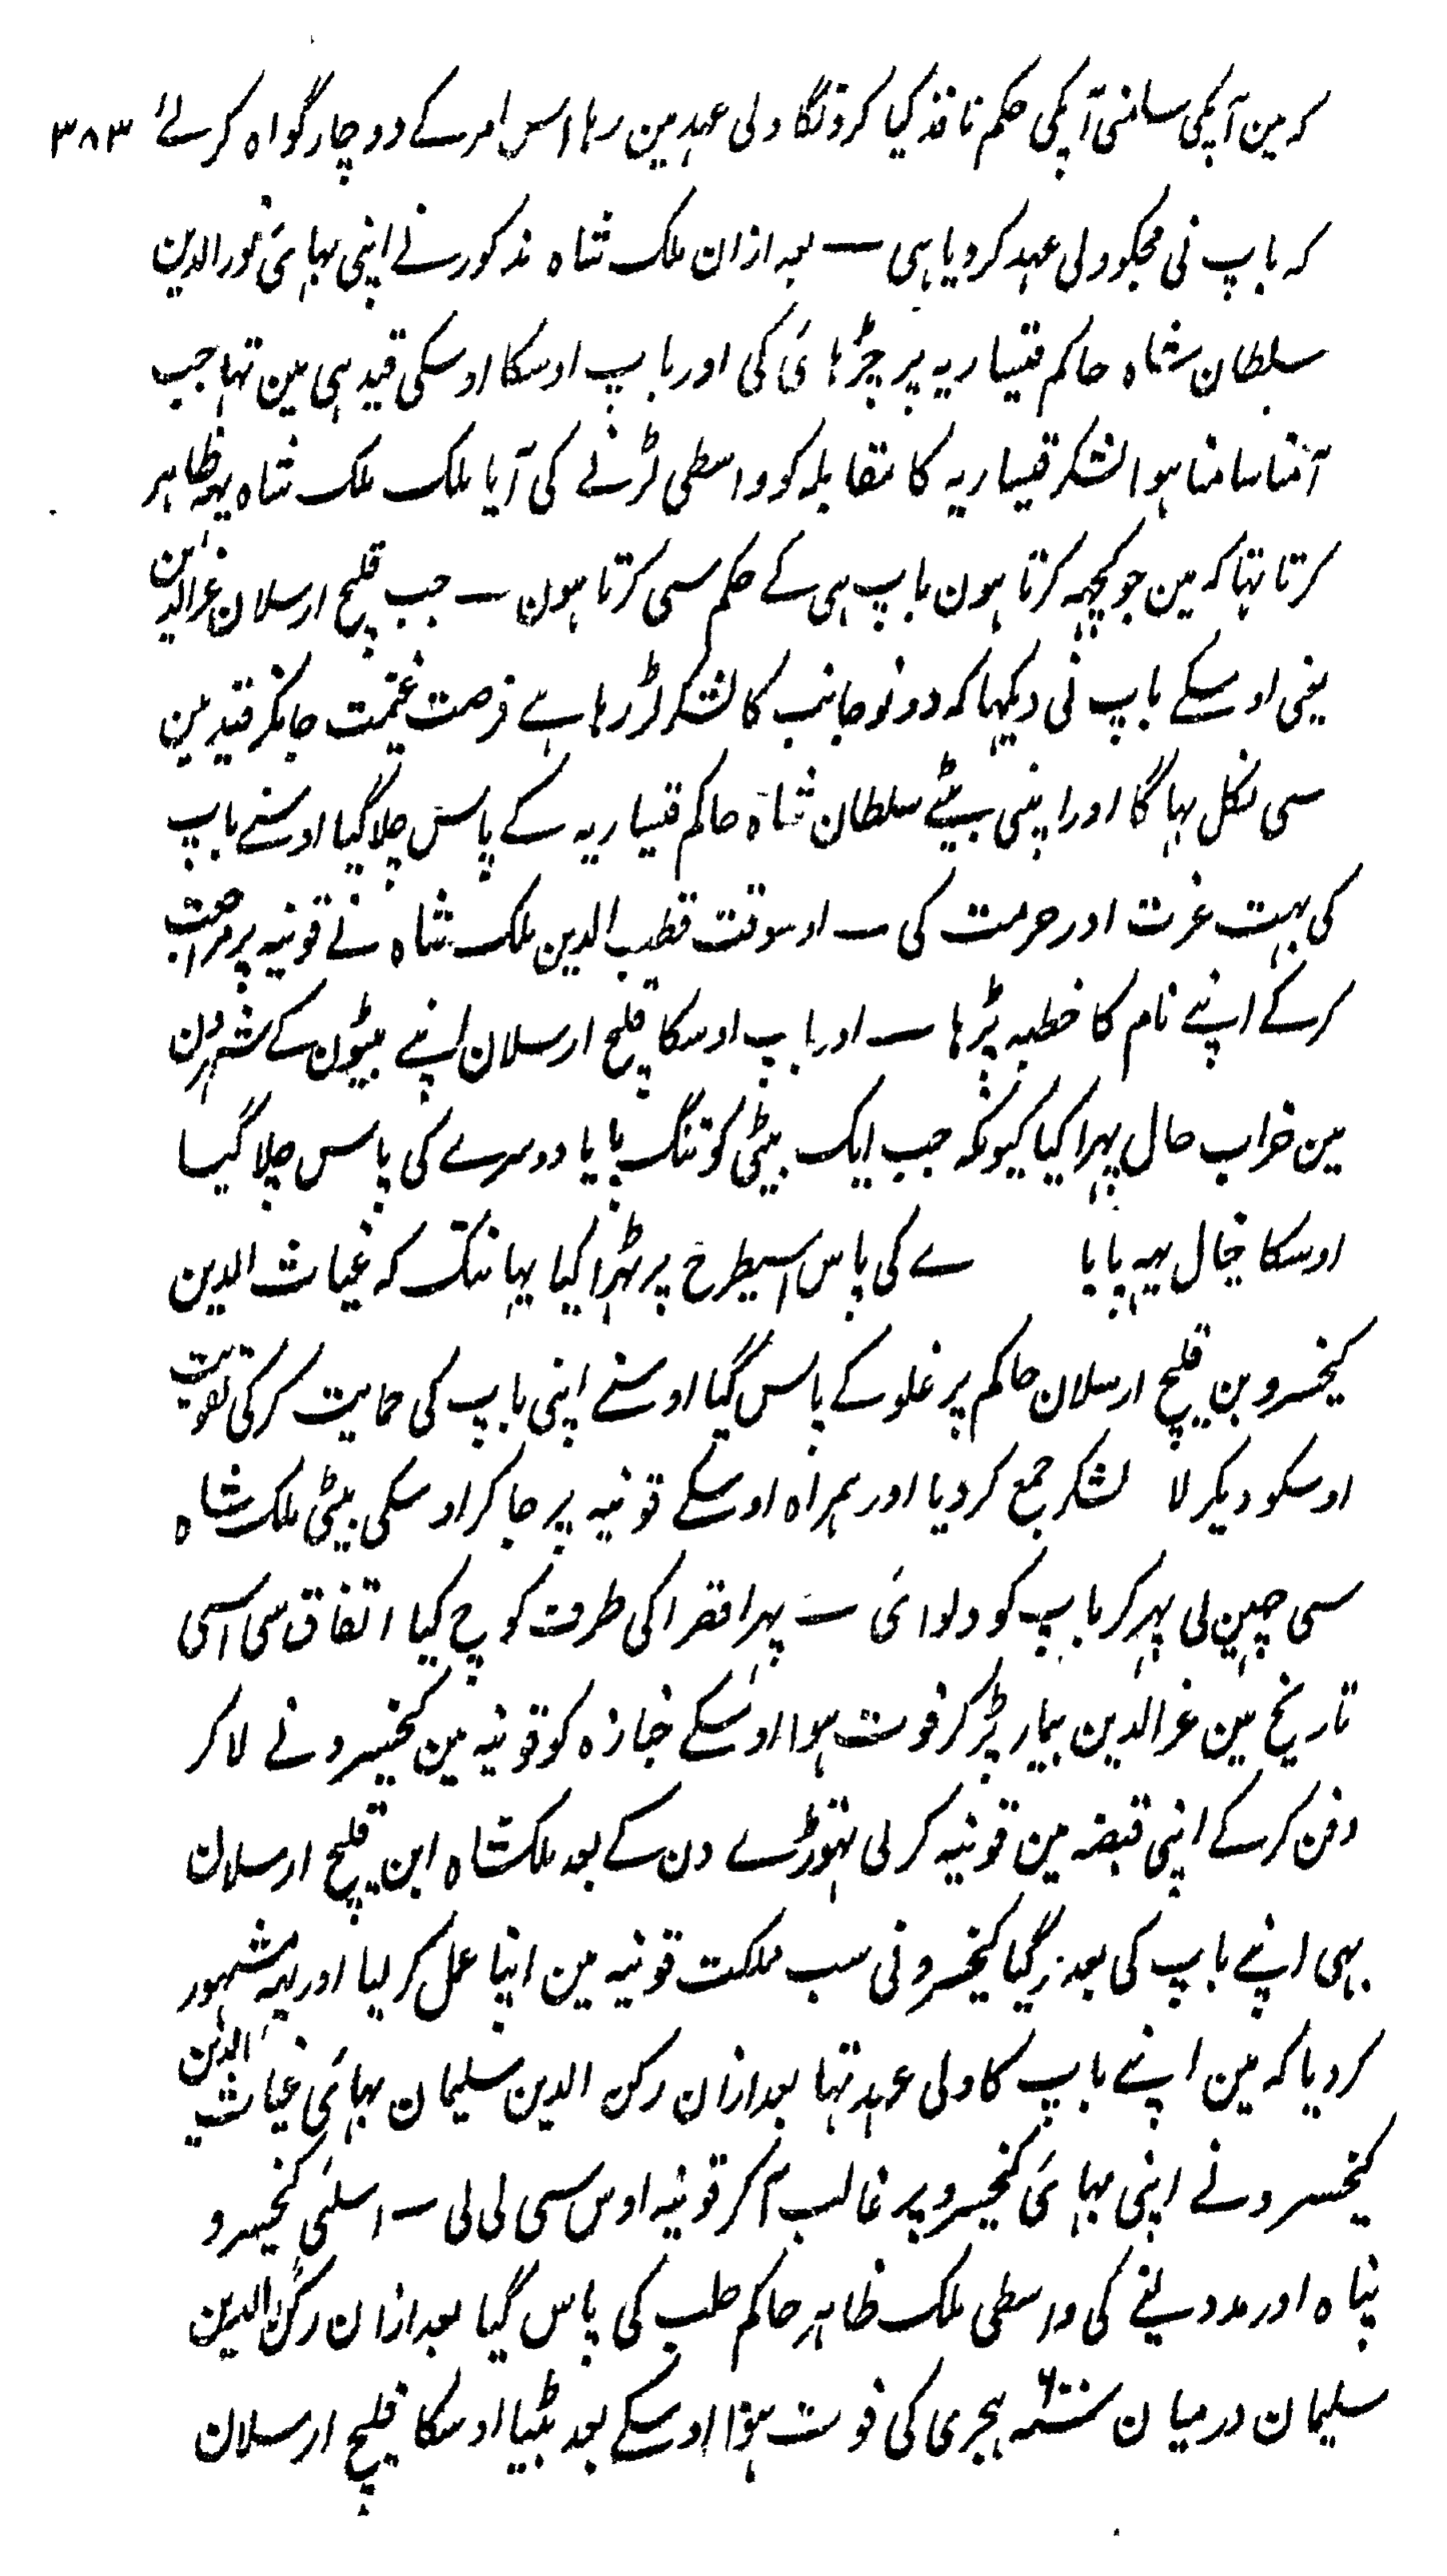 کہ مین آپکی سامنی آپکی حکم نافذ کیا کرونگا ولی عہد مین رہا اس امر کے دو چار گواہ کر لئے ۳۸۳
کہ باپ نی مجکو ولی عہد کر دیا ہی — بعد ازان ملک شاہ مذکور نے اپنی بہائی نور الدین
سلطان شاہ حاکم قیساریہ پر چڑہائی کی اور باپ اوسکا اوسکی قید ہی مین تہا جب
آمنا سامنا ہوا لشکر قیساریہ کا مقابلہ کو واسطی لڑنے کی آیا ملک ملک شاہ یہہ ظاہر
کرتا تہا کہ مین جو کچہہ کرتا ہون باپ ہی کے حکم سی کرتا ہون — جب قلیچ ارسلان عزالدین
یعنی اوسکے باپ نی دیکہا کہ دونو جانب کا لشکر لڑ رہا ہے فرصت غنیمت جانکر قید مین
سی نکل بہاگا اور اپنی بیٹے سلطان شاہ حاکم قیساریہ کے پاس چلا گیا اوسنے باپ
کی بہت عزت اور حرمت کی — اوسوقت قطب الدین ملک شاہ نے قونیہ پر مراجعت
کرکے اپنے نام کا خطبہ پڑہا — اور باپ اوسکا قلیچ ارسلان اپنے بیٹون کے شہرون
مین خراب حال پہرا کیا کیونکہ جب ایک بیٹی کو تنگ پایا دوسرے کی پاس چلا گیا
اوسکا خیال یہہ پایا ے کی پاس اسیطرح پر ٹہرا کیا یہانتک کہ غیاث الدین
کیخسرو بن قلیچ ارسلان حاکم پرغلو کے پاس گیا اوسنے اپنی باپ کی حمایت کرکی تقویت
اوسکو دیکر لا لشکر جمع کر دیا اور ہمراہ اوسکے قونیہ پر جاکر اوسکی بیٹی ملک شاہ
سی چہین لی پہر کر باپ کو دلوائی — پہر اقصرا کی طرف کوچ کیا اتفاق سی اسی
تاریخ مین عزالدین بیمار پڑ کر فوت ہوا اوسکے جنازہ کو قونیہ مین کیخسرو نے لا کر
دفن کرکے اپنی قبضہ مین قونیہ کر لی تہوڑے دن کے بعد ملکشاہ ابن قلیچ ارسلان
بہی اپنے باپ کی بعد مر گیا کیخسرو نی سب مملکت قونیہ مین اپنا عمل کر لیا اور یہہ مشہور
کر دیا کہ مین اپنے باپ کا ولی عہد تہا بعد ازان رکن الدین سلیمان بہائی غیاث الدین
کیخسرو نے اپنی بہائی کیخسرو پر غالب آکر قونیہ اوس سی لی لی — اسلئی کیخسرو
پناہ اور مدد لینے کی واسطی ملک ظاہر حاکم حلب کی پاس گیا بعد ازان رکن الدین
سلیمان درمیان سنہ ۶۰۰ ہجری کی فوت ہوا اوسکے بعد بیٹا اوسکا قلیچ ارسلان